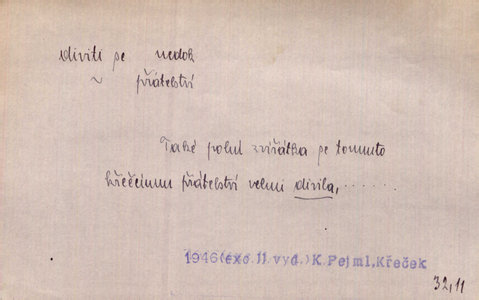 diviti se nedok
~ přátelství
Také polní zvířátka se tomuto
křeččímu přátelství velmi divila, . . . . . .
1946(exc.11.vyd.)K.Pejml,Křeček
32,11